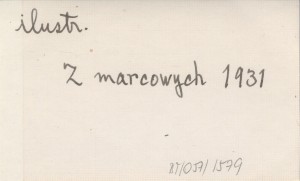 ilustr.
Z marcowych 1931
/1579